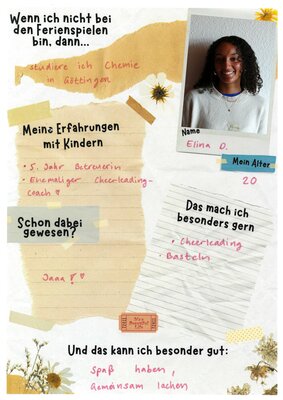 Wenn ich nicht bei
den Ferienspielen
bin, dann...
studiere ich Chemie
in Göttingen
Name
Elina D.
Mein Alter
20
Meine Erfahrungen
mit Kindern
• 5. Jahr Betreuerin
• Ehemaliger Cheerleading-
Coach ♡
Das mach ich
besonders gern
• Cheerleading
• Basteln
Schon dabei
gewesen?
Jaaa! ♡
Und das kann ich besonder gut:
Spaß haben,
Gemeinsam lachen